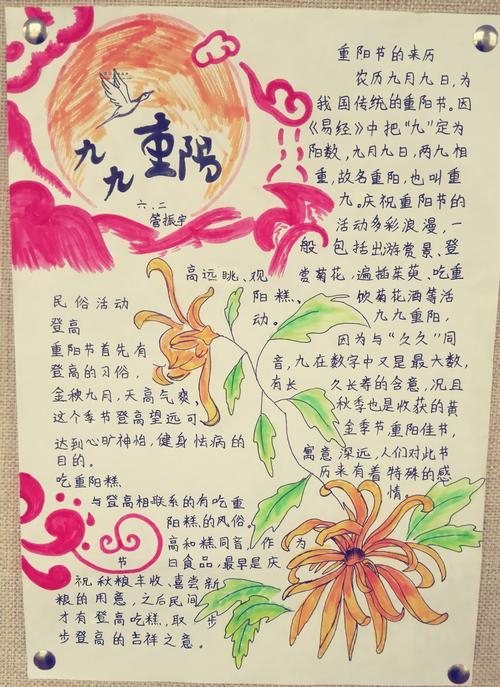 九九重阳
六.二
管振宇
重阳节的来历
农历九月九日,为
我国传统的重阳节。因
《易经》中把“九”定为
阳数,九月九日,两九相
重,故名重阳,也叫重
九。庆祝重阳节的
活动多彩浪漫,一
般包括出游赏景、登
高远眺、观赏菊花,遍插茱萸、吃重
阳糕、饮菊花酒等活
动。九九重阳,
因为与“久久”同
音,九在数字中又是最大数,
有长久长寿的含意,况且
秋季也是收获的黄
金季节重阳佳节,
寓意深远,人们对此节
历来有着特殊的感
情。
民俗活动
登高
重阳节首先有
登高的习俗,
金秋九月,天高气爽
这个季节登高望远可
达到心旷神怡,健身怯病的
目的。
吃重阳糕
与登高相联系的有吃重
阳糕的风俗。
高和糕同音,作为
节日食品,最早是庆
祝秋粮丰收、喜尝新
粮的用意,之后民间
才有登高吃糕,取步
步登高的吉祥之意。